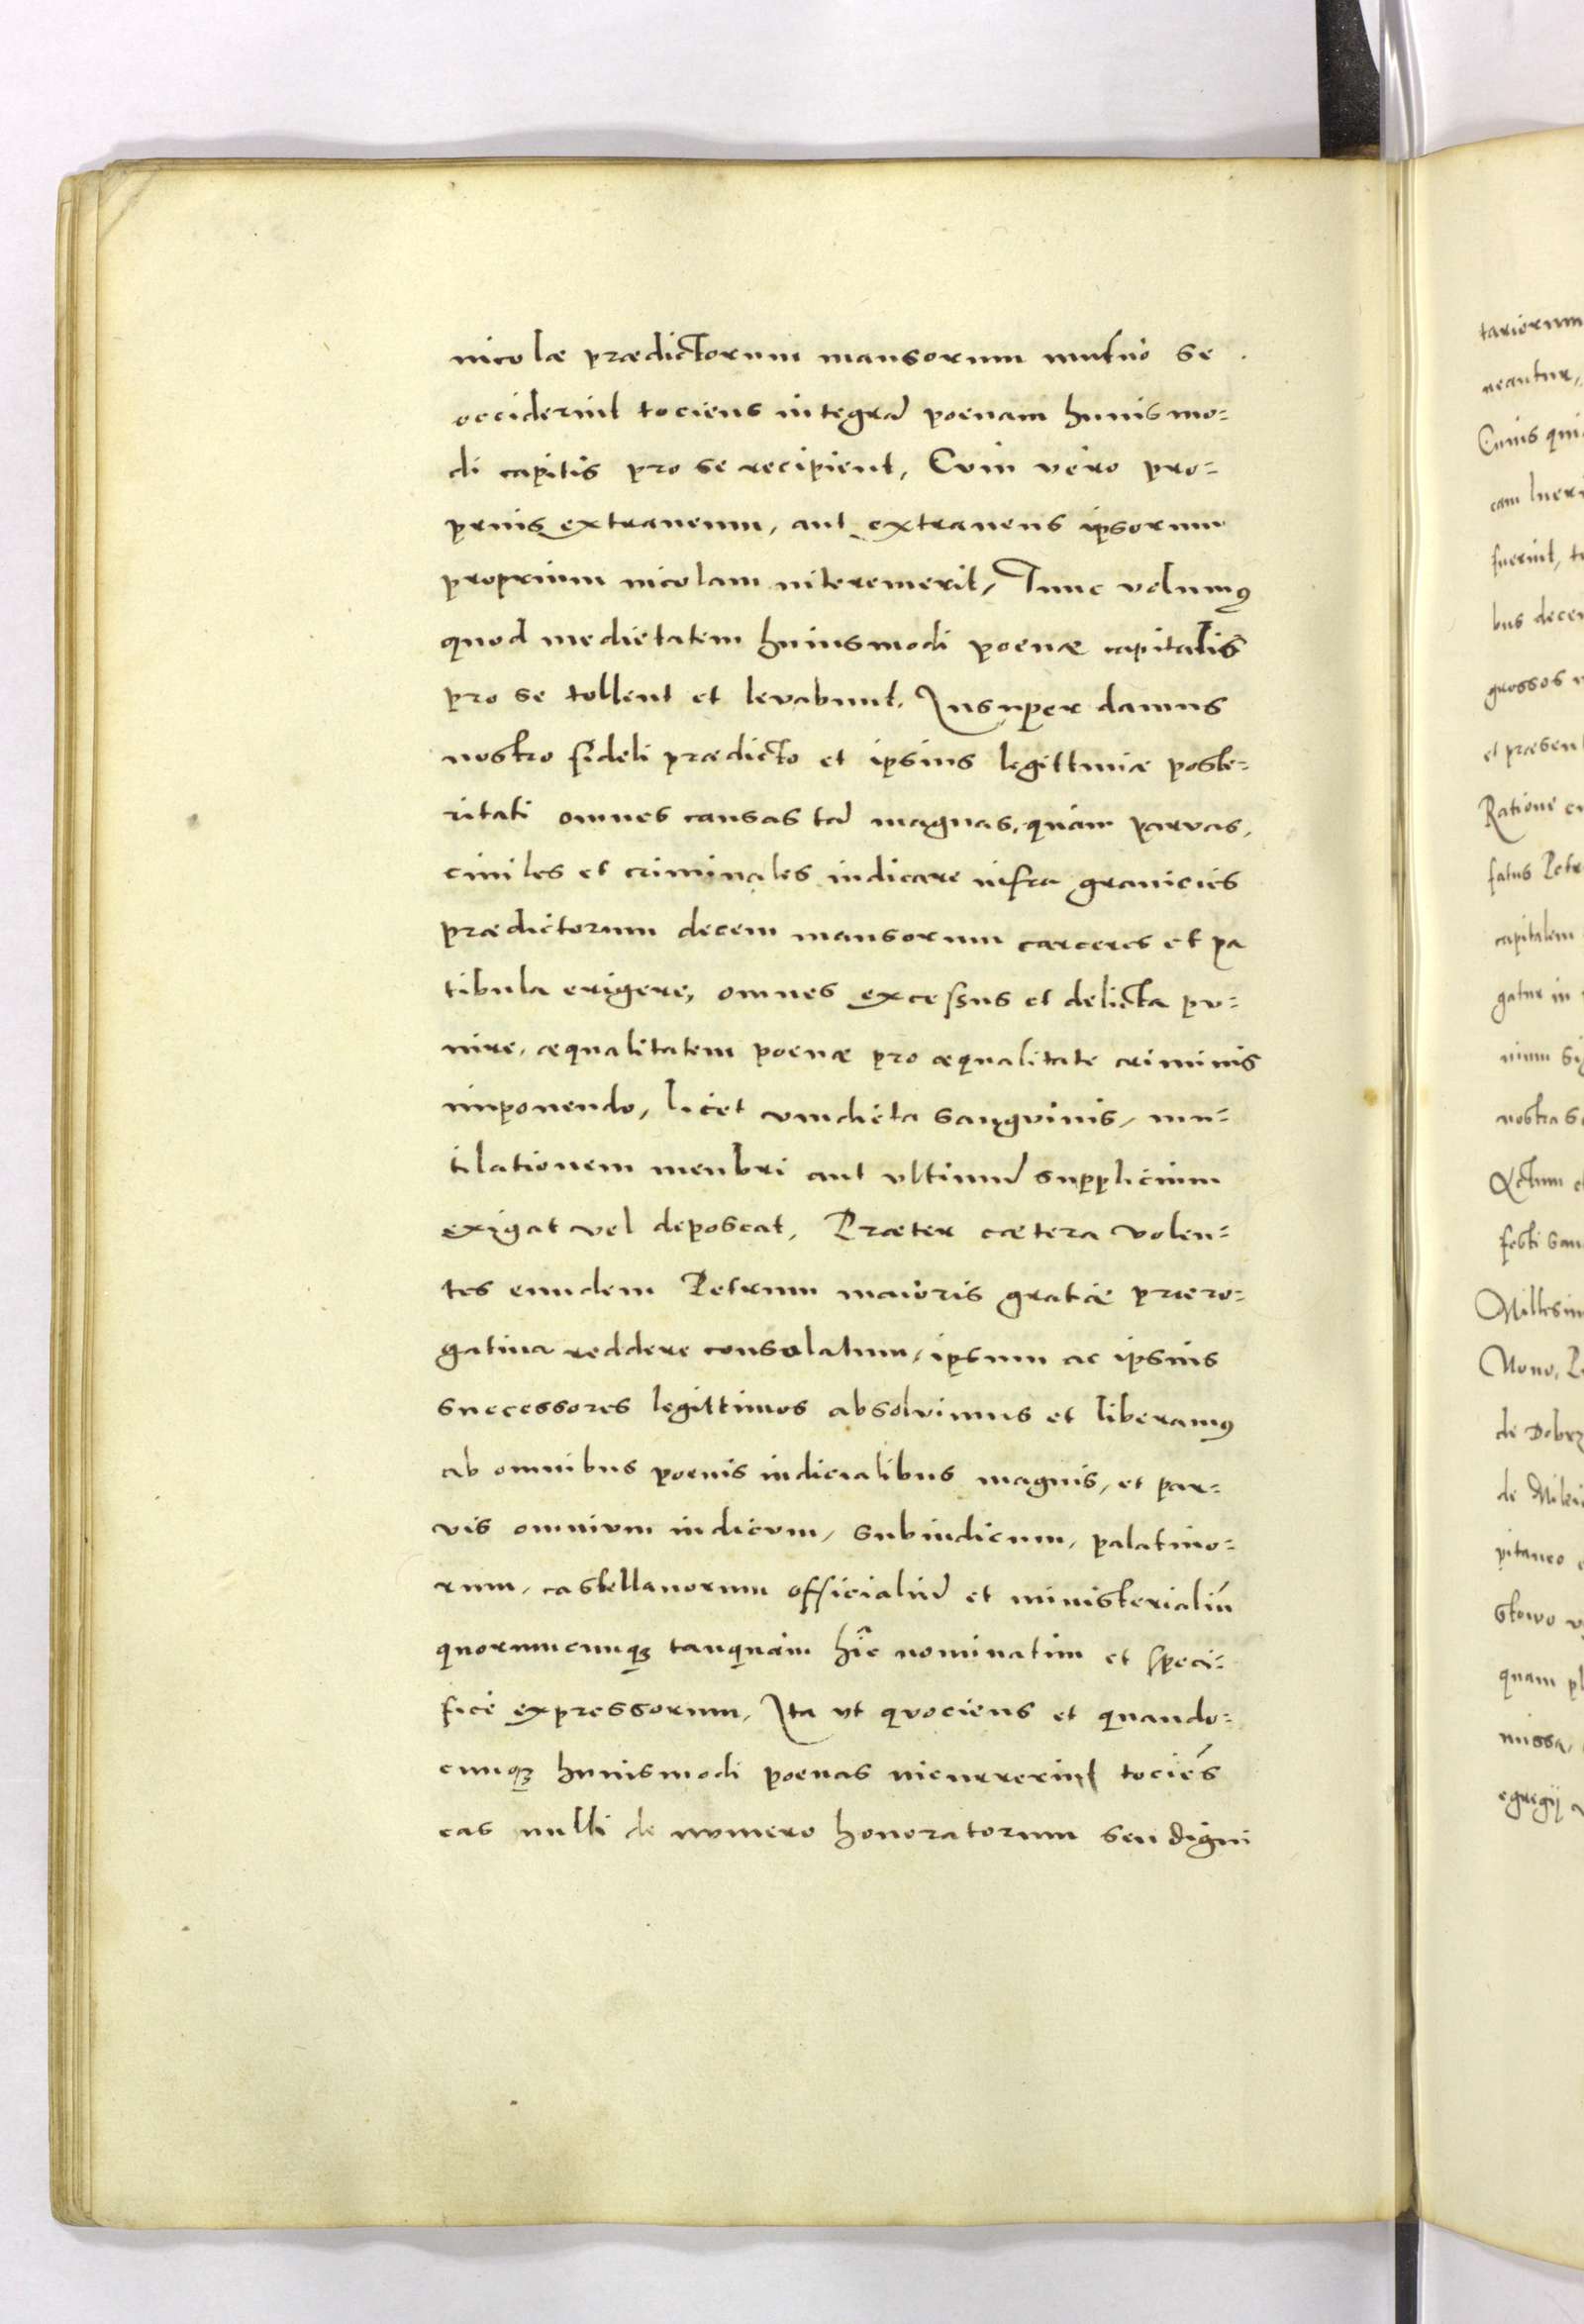 incolæ prædictorum mansorum mutuo se
occiderint tociens integrã poenam huius mo=
di capitis pro se recipient, Cum vero pro=
prius extraneum, aut extraneus ipsorum
proprium incolam interemerit, Tunc volumꝰ
quod medietatem huiusmodi poenæ capitalis
pro se tollent et levabunt. Insuper damus
nostro fideli prædicto et ipsius legittimæ poste=
ritati omnes causas tã magnas, quàm parvas,
ciuiles et criminales iudicare infra granicies
prædictorum decem mansorum carceres et pa
tibula erigere, omnes excessus et delicta pu=
nire, æqualitatem poenæ pro æqualitate criminis
imponendo, licet vindicta sanguinis, mu=
tilationem menbri aut vltimũ supplicium
exigat vel deposcat, Præter cætera volen=
tes eundem Petrum maioris gratiæ præro=
gatiua reddere consolatum, ipsum ac ipsius
successores legittimos absolvimus et liberamꝰ
ab omnibus poenis iudicialibus magnis, et par=
vis omnium iudicum, subiudicum, palatino=
rum, castellanorum officialiũ et ministerialiũ
quorumcunqꝫ tanquam hîc nominatim et speci=
fice expressorum, Ita vt quociens et quando=
cunqꝫ huiusmodi poenas incurrerint tociẽs
eas nulli de numero honoratorum seu digni
tariorum
neantur,
Cuius
cam
bus
grossos
Ratione
fatus
capitalem
gatur in
nostra
Actum
festi
Nono,
de
de
quam
missa,
egregij